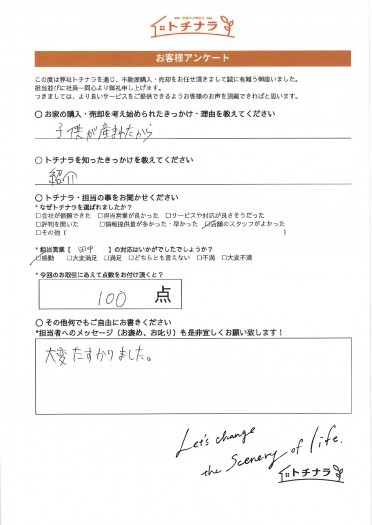 トチナラ
お客様アンケート
この度は弊社トチナラを通じ、不動産購入・売却をお任せ頂きまして誠に有難う御座いました。
担当並びに社員一同心より御礼申し上げます。
つきましては、より良いサービスをご提供できるようお客様のお声を頂戴できればと思います。
〇 お家の購入・売却を考え始められたきっかけ・理由を教えてください
子供が産まれたから
〇 トチナラを知ったきっかけを教えてください
紹介
〇 トチナラ・担当の事をお聞かせください
*なぜトチナラを選ばれましたか?
□会社が信頼できた □担当営業が良かった □サービスや対応が良さそうだった
□評判を聞いた □情報提供量が多かった・早かった □店舗のスタッフがよかった
□その他 (
*担当営業 [ 田中 ] の対応はいかがでしたでしょうか?
□感動 □大変満足 □満足 □どちらとも言えない □不満 □大変不満
*今回のお取引にあえて点数をお付け頂くと?
100 点
〇 その他何でもご自由にお書きください
*担当者へのメッセージ (お褒め、お叱り) も是非宜しくお願い致します!
大変たすかりました。
Let's change
the scenery of life.
トチナラ